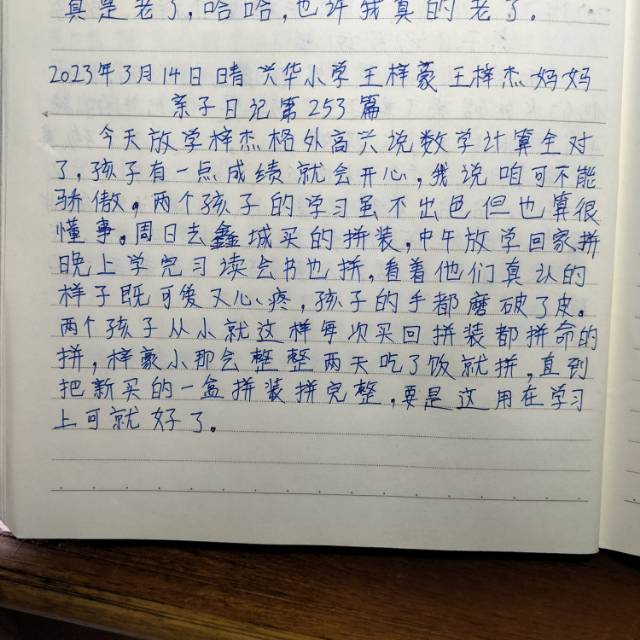 真是老了,哈哈,也许我真的老了。
2023年3月14日 晴 兴华小学王梓豪 王梓杰妈妈
亲子日记第253篇
今天放学梓杰格外高兴说数学计算全对
了,孩子有一点成绩就会开心,我说咱可不能
骄傲。两个孩子的学习虽不出色但也算很
懂事。周日去鑫城买的拼装,中午放学回家拼
晚上学完习读会书也拼,看着他们真认的
样子既可爱又心疼,孩子的手都磨破了皮。
两个孩子从小就这样每次买回拼装都拼命的
拼,梓豪小那会整整两天吃了饭就拼,直到
把新买的一盒拼装拼完整,要是这用在学习
上可就好了。